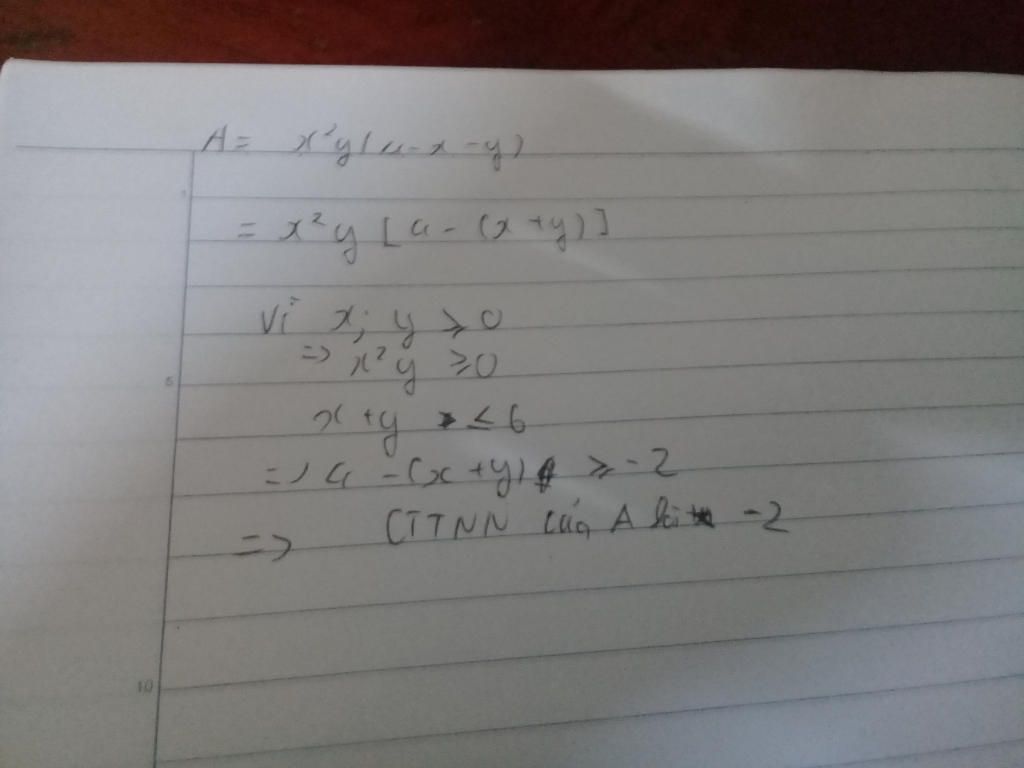 A = x²y(4-x-y)
= x²y [4-(x+y)]
Vì x; y ≥ 0
=> x²y ≥ 0
x+y ≤ 6
=> 4-(x+y) ≥ -2
=> GTNN của A là -2
5
10